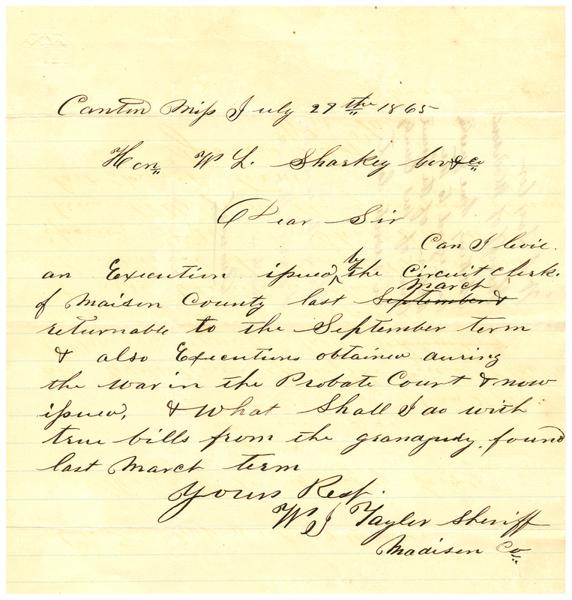 Canton Miss July 29th 1865
Hon W L. Sharkey Gov &c
Dear Sir
Can I levie
an Execution issued by the Circuit Clerk
of Maison County last September & March
returnable to the September term
& also Executions obtained during
the war in the Probate Court & now
issued, & What Shall I do with
true bills from the grandjudy found
last March term
Yours Resp.
W J Tayler Sheriff
Madison Co